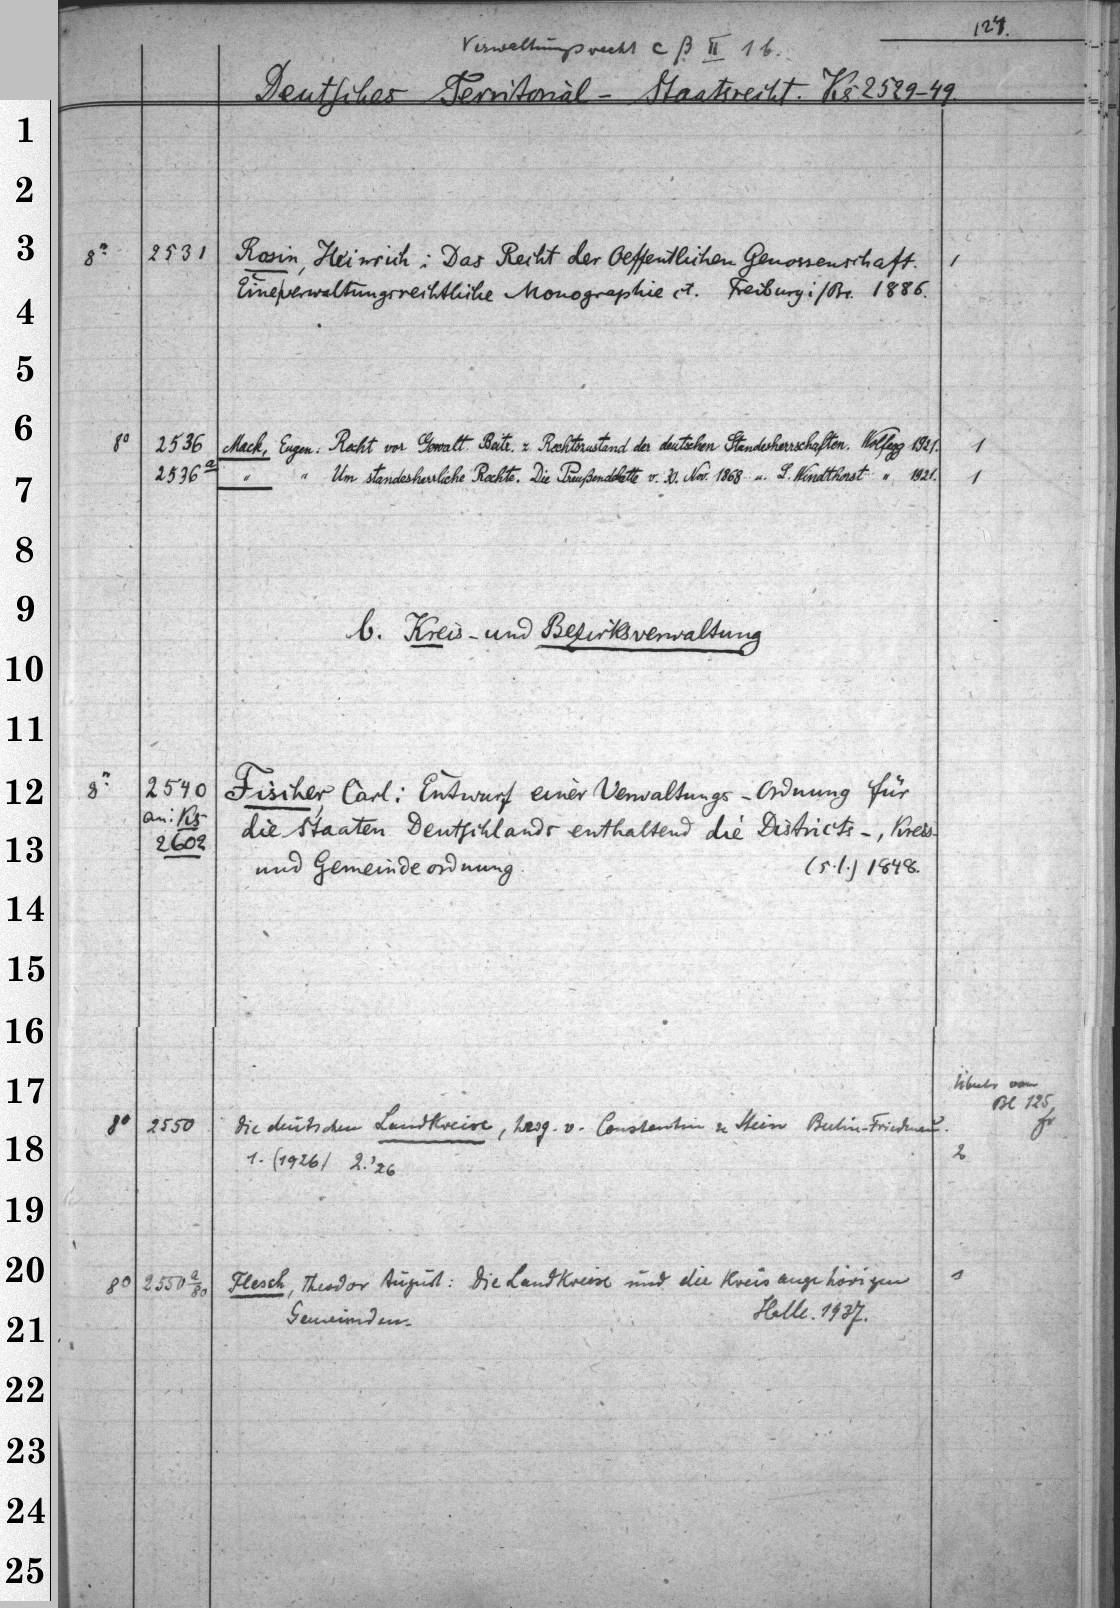 127.
Verwaltungsrecht C β II 1 b.
Deutsches Territorial - Staatsrecht. Ks 2529-49.
1
2
3 8° 2531 Rosin, Heinrich: Das Recht der Oeffentlichen Genossenschaft. 1
Eine verwaltungsrechtliche Monographie ct. Freiburg i/Br. 1886.
4
5
6 8° 2536 Mack, Eugen: Recht vor Gewalt. Beitr. z. Rechtszustand der deutschen Standesherrschaften. Wolfegg 1921. 1
7 2536a " " Um standesherrliche Rechte. Die Preußendebatte v. 30. Nov. 1868 u. L. Windthorst " 1921. 1
8
9 b. Kreis- und Bezirksverwaltung
10
11
12 8° 2540 Fischer, Carl: Entwurf einer Verwaltungs-Ordnung für
an: Ks die Staaten Deutschlands enthaltend die Districts-, Kreis-
13 2602
und Gemeindeordnung (s.l.) 1848.
14
15
16
17 über von
Bl 125
8° 2550 Die deutschen Landkreise, hrsg. v. Constantin u Stein Berlin-Friedenau.
18 1. (1926) 2. '26 2
19
20 8° 2550 a/80 Flesch, Theodor August: Die Landkreise und die kreisangehörigen 1
Gemeinden. Halle. 1937.
21
22
23
24
25